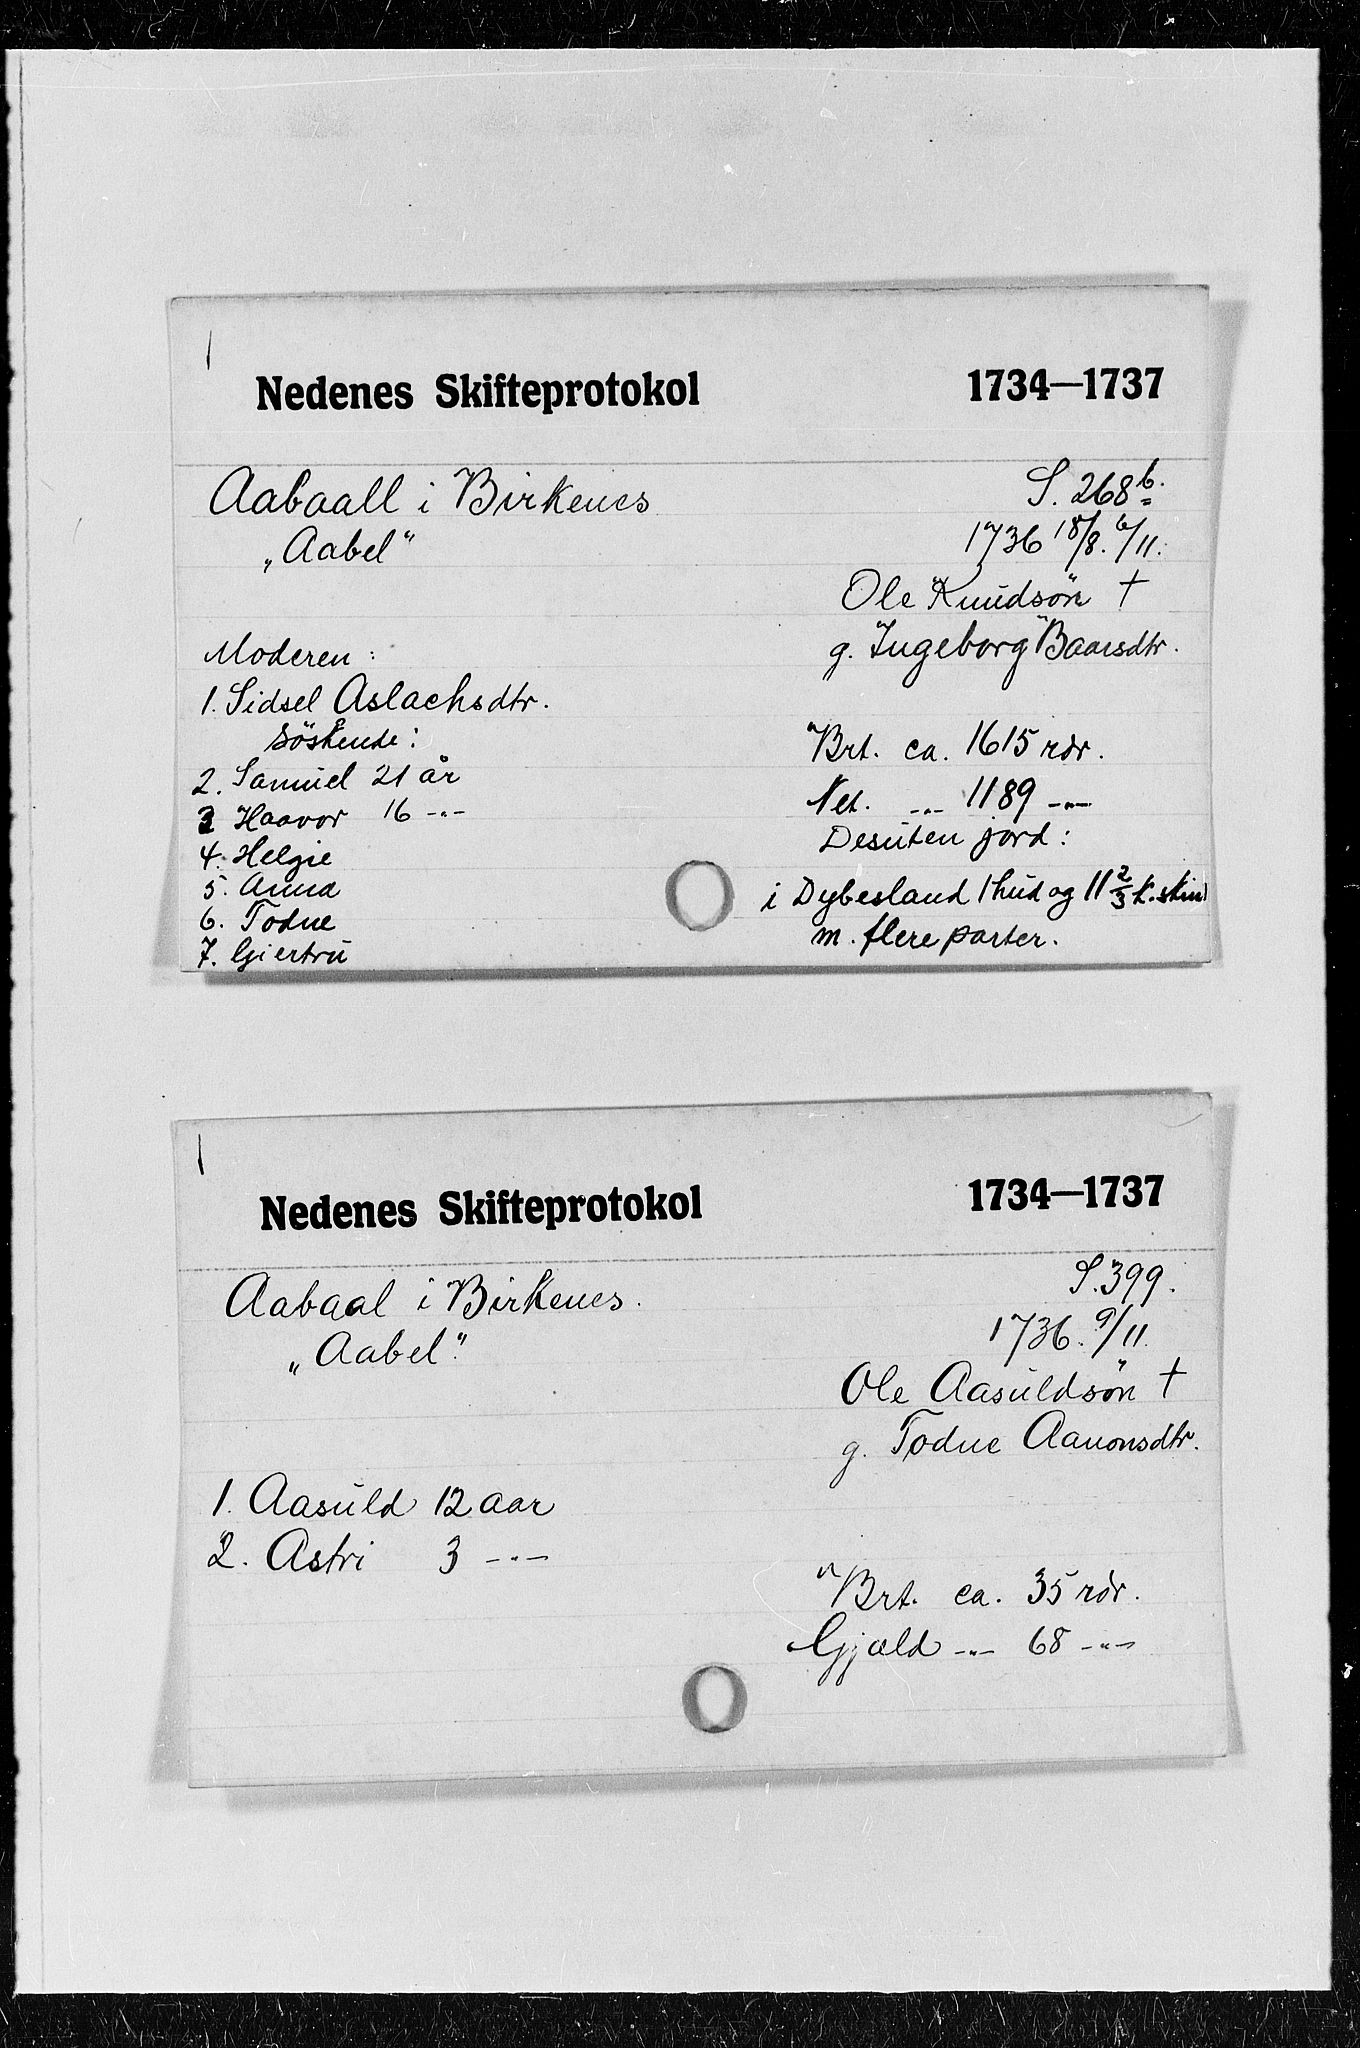 1
Nedenes Skifteprotokol 1734—1737
Aabaall i Birkenes S. 268b.
„Aabel“ 1736 18/8. 6/11.
Ole Knudsön †
Moderen: g. Ingeborg Baarsdtr.
1. Sidsel Aslachsdtr.
Söskende: Brt. ca. 1615 rdr.
2. Samuel 21 år
Net. -"- 1189 -"-
3 Haavor 16 -"-
Desuten jord:
4. Helgie
5. Anna i Dybesland 1 hud og 11 2/3 k.skind
6. Todne
m. flere parter.
7. Giertru
1
Nedenes Skifteprotokol 1734—1737
Aabaal i Birkenes. S. 399.
„Aabel“. 1736. 9/11.
Ole Aasuldsön †
g. Todne Aanonsdtr.
1. Aasuld 12 aar
2. Astri 3 -"-
Brt. ca. 35 rdr.
Gjæld -"- 68 -"-